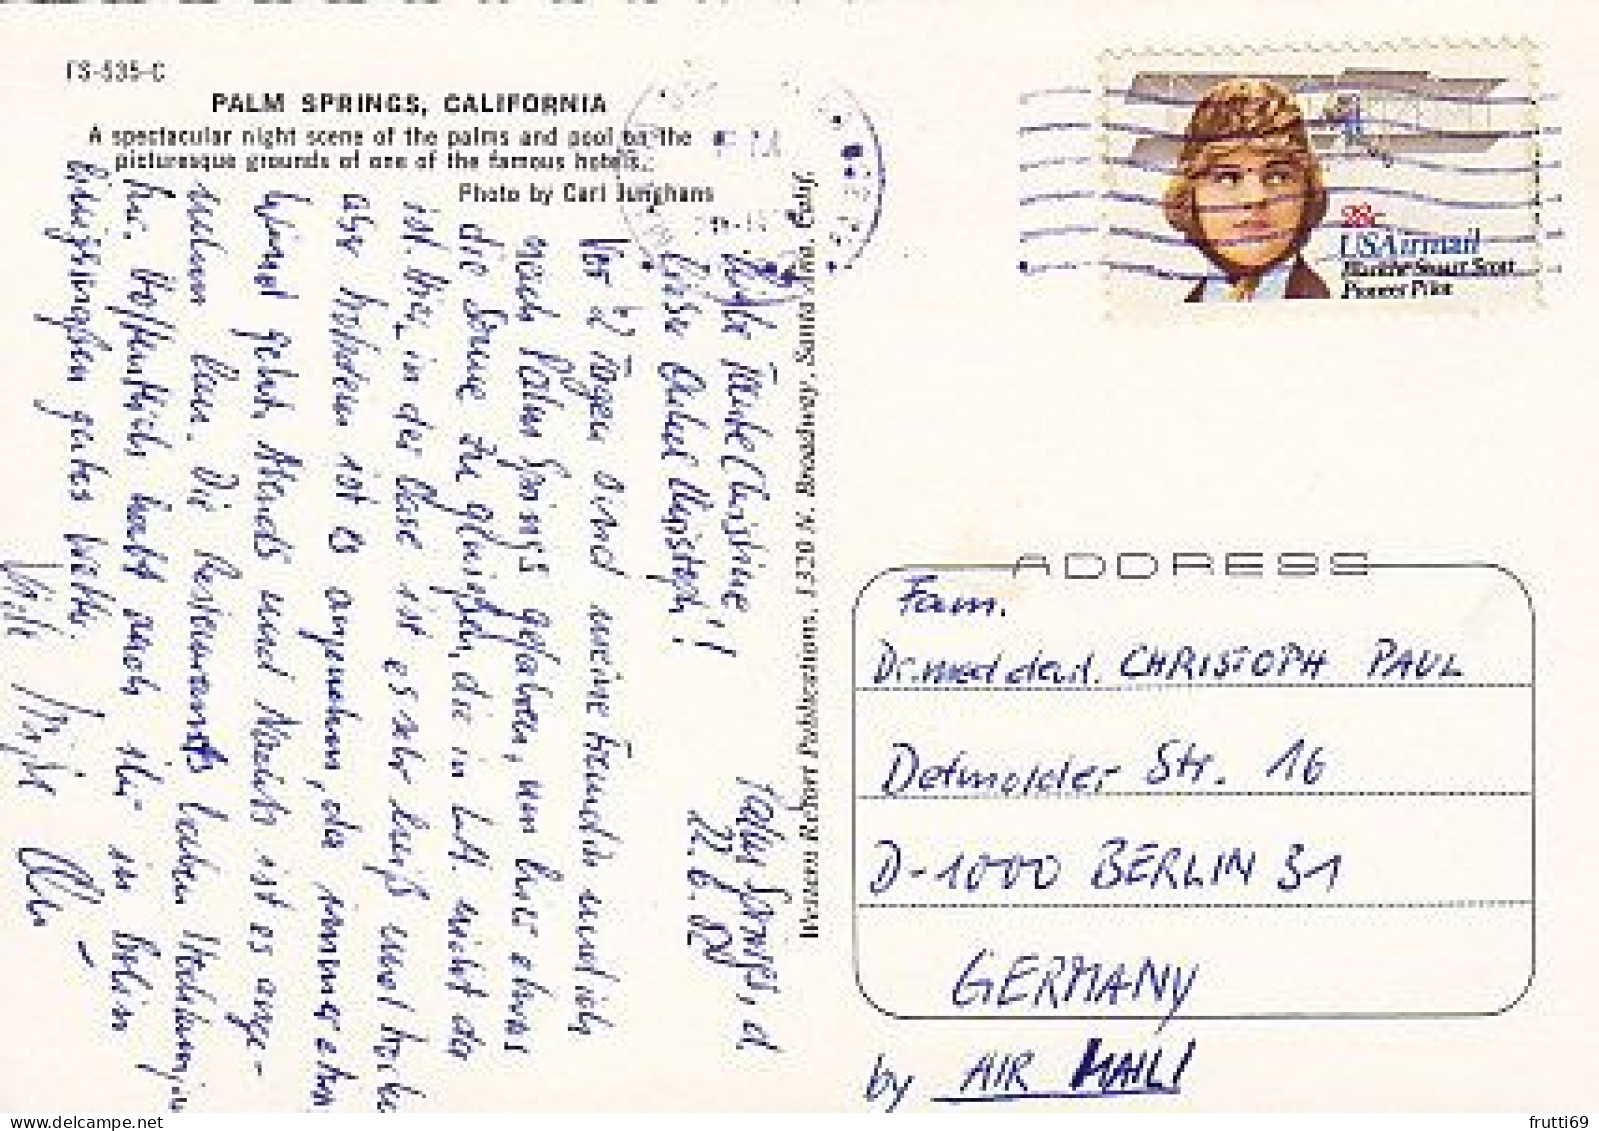 FS-635-C
PALM SPRINGS, CALIFORNIA
A spectacular night scene of the palms and pool on the
picturesque grounds of one of the famous hotels.
Photo by Carl Junghans
Western Resort Publications, 1320 N. Broadway, Santa Ana, Calif.
28c
USAirmail
Blanche Stuart Scott
Pioneer Pilot
Palm Springs, d.
22.6.82
Liebe Christine!
Lieber Christoph!
Vor 2 Tagen sind meine Freundin und ich
nach Palm Springs gefahren, um hier etwas
die Sonne zu genießen, die in L.A. nicht da
ist. Hier, in der Oase ist es sehr heiß und trocken
aber trotzdem ist es angenehm, da immer ein
Wind geht. Abends und Nachts ist es ange-
nehm
Die
Hoffentlich habt auch Ihr in Berlin
gutes Wetter.
Viele Grüße
ADDRESS
Fam.
Dr. med. dent. CHRISTOPH PAUL
Detmolder Str. 16
D-1000 BERLIN 31
GERMANY
by AIR MAIL!
frutti69